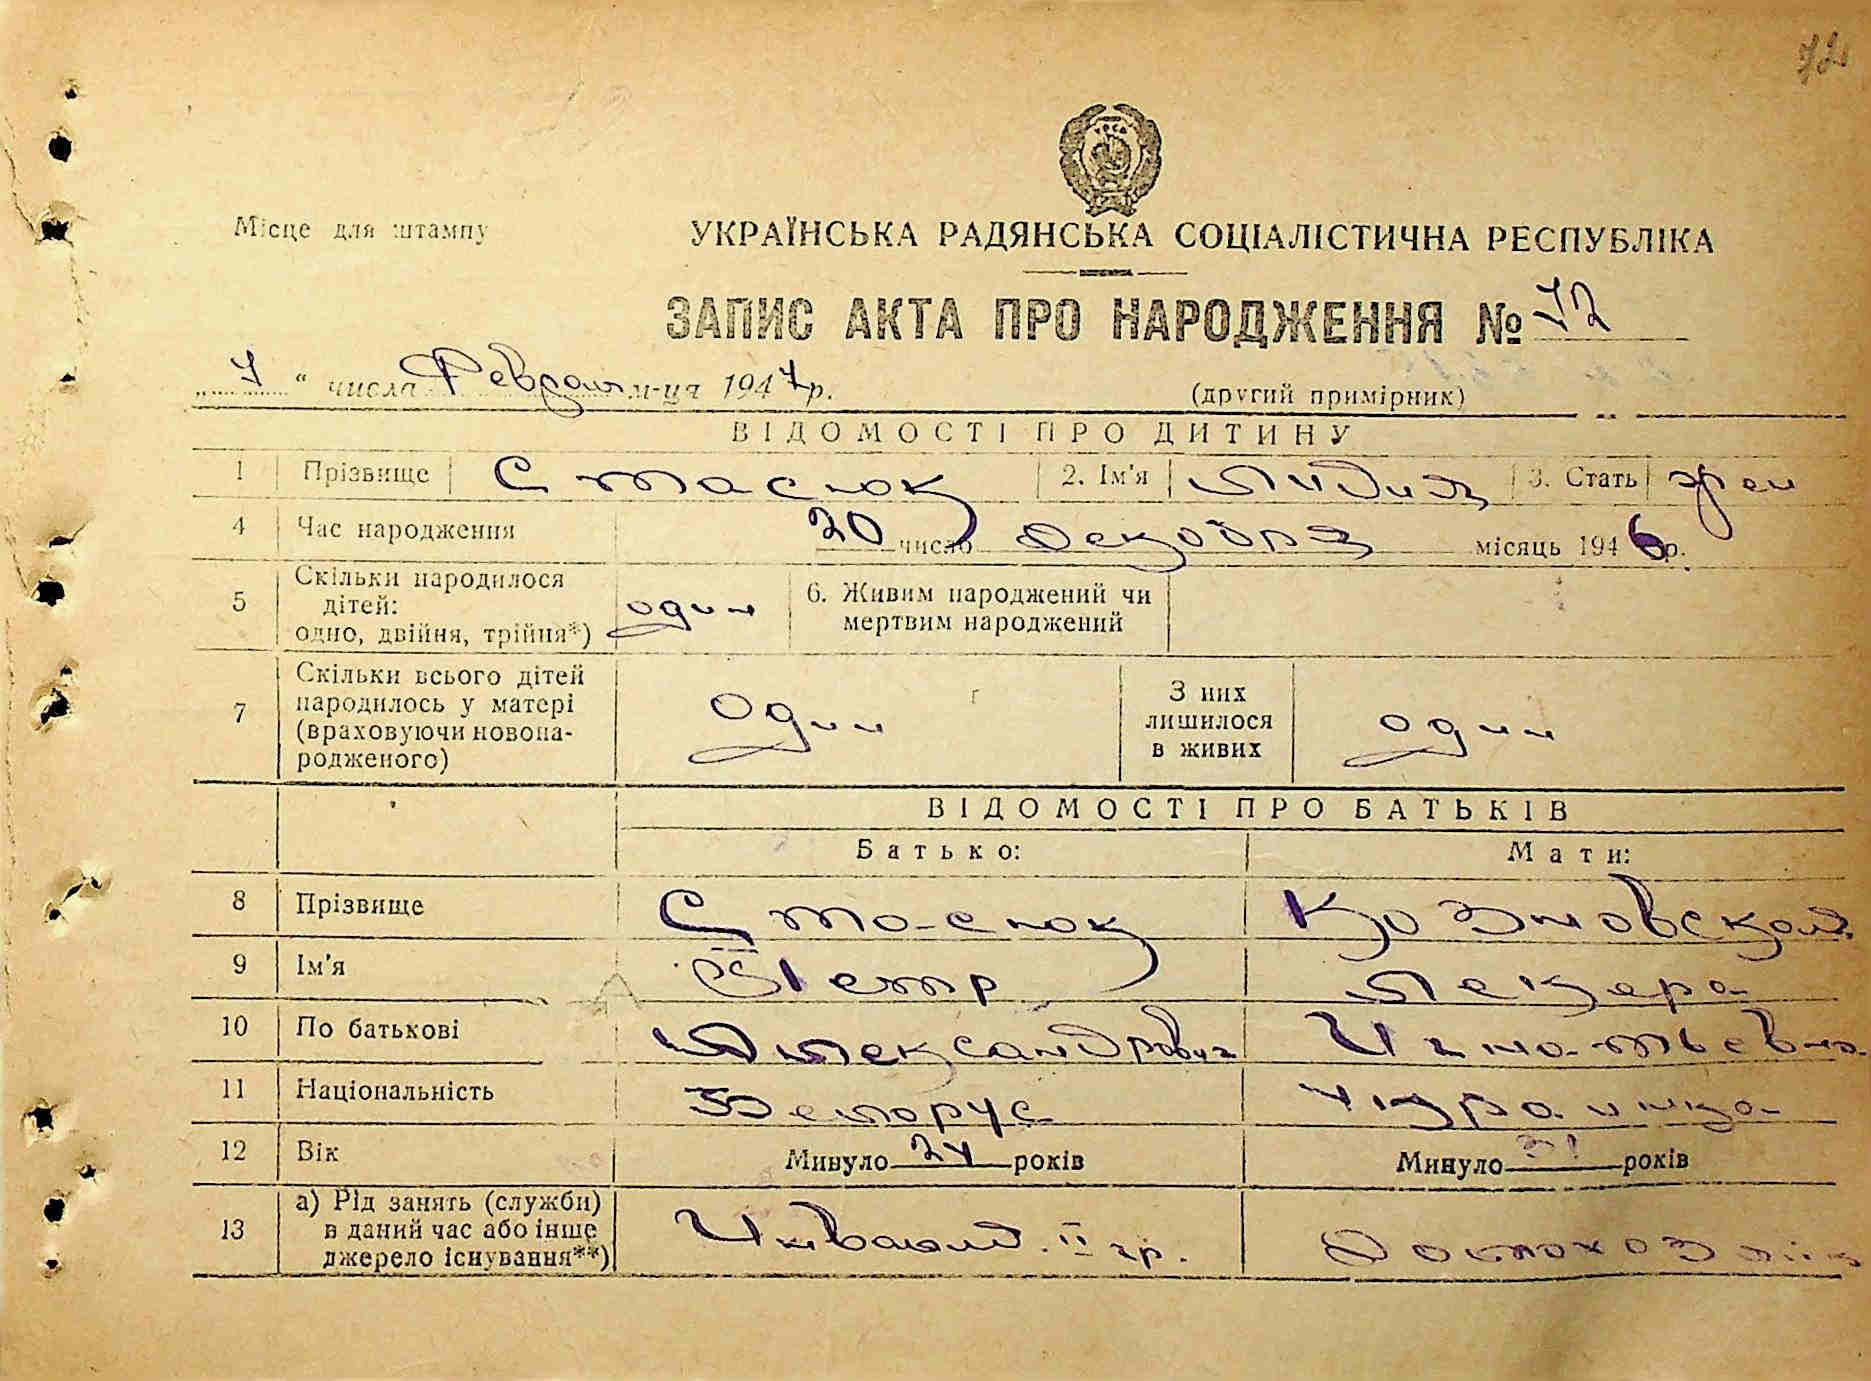 72
УРСР
Місце для штампу
УКРАЇНСЬКА РАДЯНСЬКА СОЦІАЛІСТИЧНА РЕСПУБЛІКА
ЗАПИС АКТА ПРО НАРОДЖЕННЯ № 72
„ 7 “ числа Февраля м-ця 1947 р.
(другий примірник)
ВІДОМОСТІ ПРО ДИТИНУ
1 Прізвище Стасюк 2. Ім'я Лидия 3. Стать жен
4 Час народження 20 число Декабря місяць 1946 р.
5 Скільки народилося дітей: одно, двійня, трійня*) один 6. Живим народжений чи мертвим народжений
7 Скільки всього дітей народилось у матері (враховуючи новонародженого) один З них лишилося в живих один
ВІДОМОСТІ ПРО БАТЬКІВ
Батько: Мати:
8 Прізвище Стасюк
9 Ім'я Петр
10 По батькові Александрович Игнатьевна
11 Національність Белорус Украинка
12 Вік Минуло 24 років Минуло 31 років
13 а) Рід занять (служби) в даний час або інше джерело існування**) Инвалид II гр. Домохозяйк